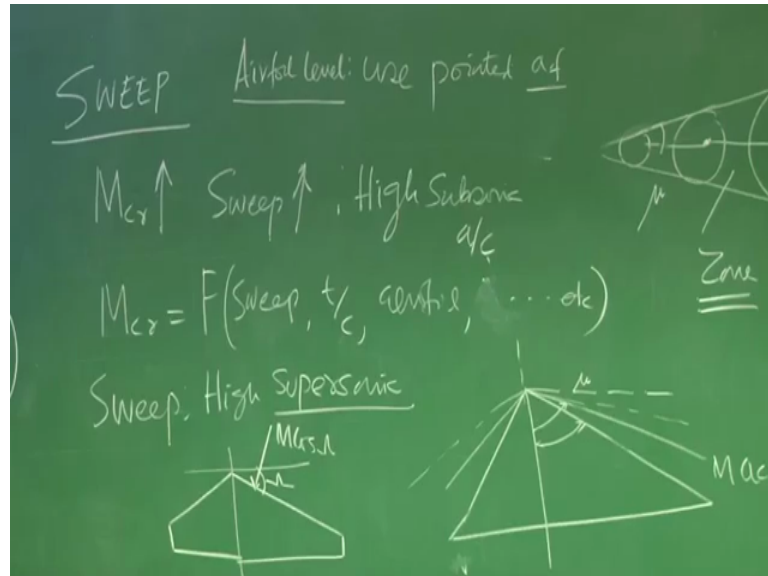 SWEEP Airfoil level: use pointed af
Mcr↑ Sweep↑, High Subsonic
a/c
μ
Zone
Mcr = F(Sweep, t/c, ..... etc)
Sweep: High Supersonic
μ
Λ